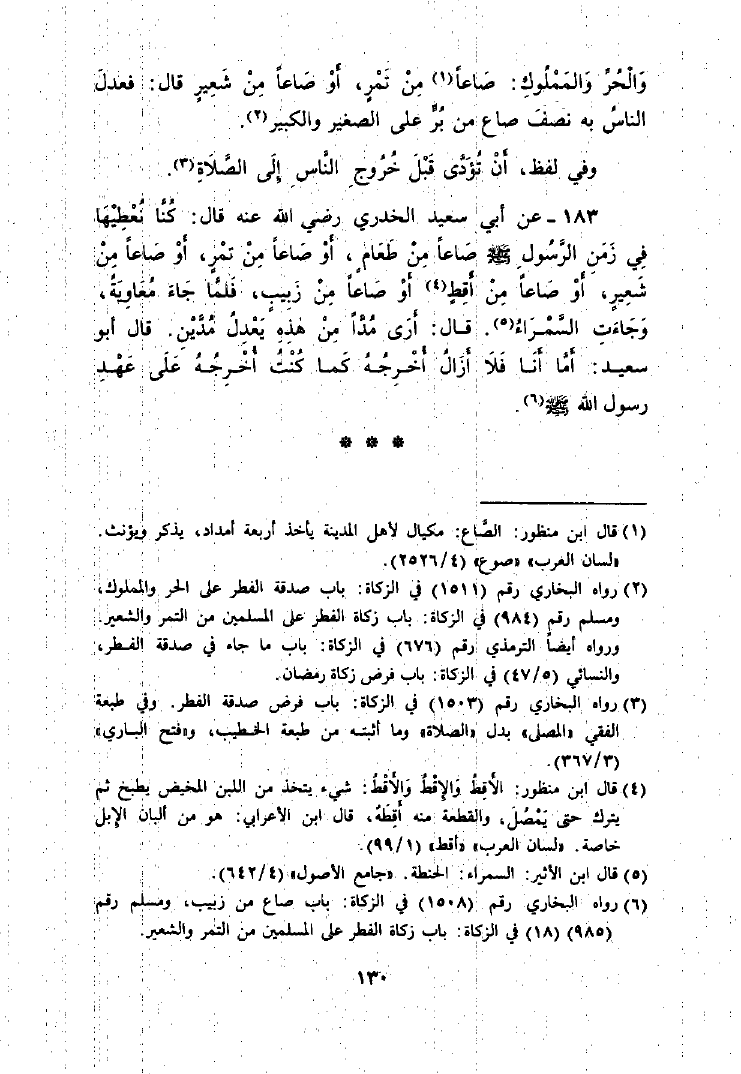 وَالْحُرِّ وَالمَمْلُوكِ: صَاعاً(١) مِنْ تَمْرٍ، أَوْ صَاعاً مِنْ شَعِيرٍ قال: فعدلَ
الناسُ به نصفَ صاع من بُرٍّ على الصغير والكبير(٢).
وفي لفظ، أَنْ تُؤَدَّى قَبْلَ خُرُوجِ النَّاسِ إِلَى الصَّلَاةِ(٣).
١٨٣ - عن أبي سعيد الخدري رضي الله عنه قال: كُنَّا نُعْطِيْهَا
فِي زَمَنِ الرَّسُولِ ﷺ صَاعاً مِنْ طَعَامٍ، أَوْ صَاعاً مِنْ تمْرٍ، أَوْ صَاعاً مِنْ
شَعِيرٍ، أَوْ صَاعاً مِنْ أَقِطٍ(٤) أَوْ صَاعاً مِنْ زَبِيبٍ، فَلَمَّا جَاءَ مُعَاوِيَةُ،
وَجَاءَتِ السَّمْرَاءُ(٥). قال: أَرَى مُدّاً مِنْ هٰذِهِ يَعْدِلُ مُدَّيْنِ. قال أبو
سعيد: أَمَّا أَنَا فَلَا أَزَالُ أُخْرِجُهُ كَمَا كُنْتُ أُخْرِجُهُ عَلَى عَهْدِ
رسول الله ﷺ(٦).
* * *
(١) قال ابن منظور: الصَّاع: مكيال لأهل المدينة يأخذ أربعة أمداد، يذكر ويؤنث.
«لسان العرب» «صوع» (٢٥٢٦/٤).
(٢) رواه البخاري رقم (١٥١١) في الزكاة: باب صدقة الفطر على الحر والمملوك،
ومسلم رقم (٩٨٤) في الزكاة: باب زكاة الفطر على المسلمين من التمر والشعير.
ورواه أيضاً الترمذي رقم (٦٧٦) في الزكاة: باب ما جاء في صدقة الفطر،
والنسائي (٤٧/٥) في الزكاة: باب فرض زكاة رمضان.
(٣) رواه البخاري رقم (١٥٠٣) في الزكاة: باب فرض صدقة الفطر. وفي طبعة
الفقي «المصلى» بدل «الصلاة» وما أثبتـه من طبعة الخطيب، و«فتح الباري»
(٣٦٧/٣).
(٤) قال ابن منظور: الأَقِطُ وَالإِقْطُ وَالأَقْطُ: شيء يتخذ من اللبن المخيض يطبخ ثم
يترك حتى يَمْصُلَ، والقطعة منه أَقِطَةٌ، قال ابن الأعرابي: هو من ألبان الإبل
خاصة. «لسان العرب» «أقط» (٩٩/١).
(٥) قال ابن الأثير: السمراء: الحنطة. «جامع الأصول» (٦٤٢/٤).
(٦) رواه البخاري رقم (١٥٠٨) في الزكاة: باب صاع من زبيب، ومسلم رقم
(٩٨٥) (١٨) في الزكاة: باب زكاة الفطر على المسلمين من التمر والشعير.
١٣٠